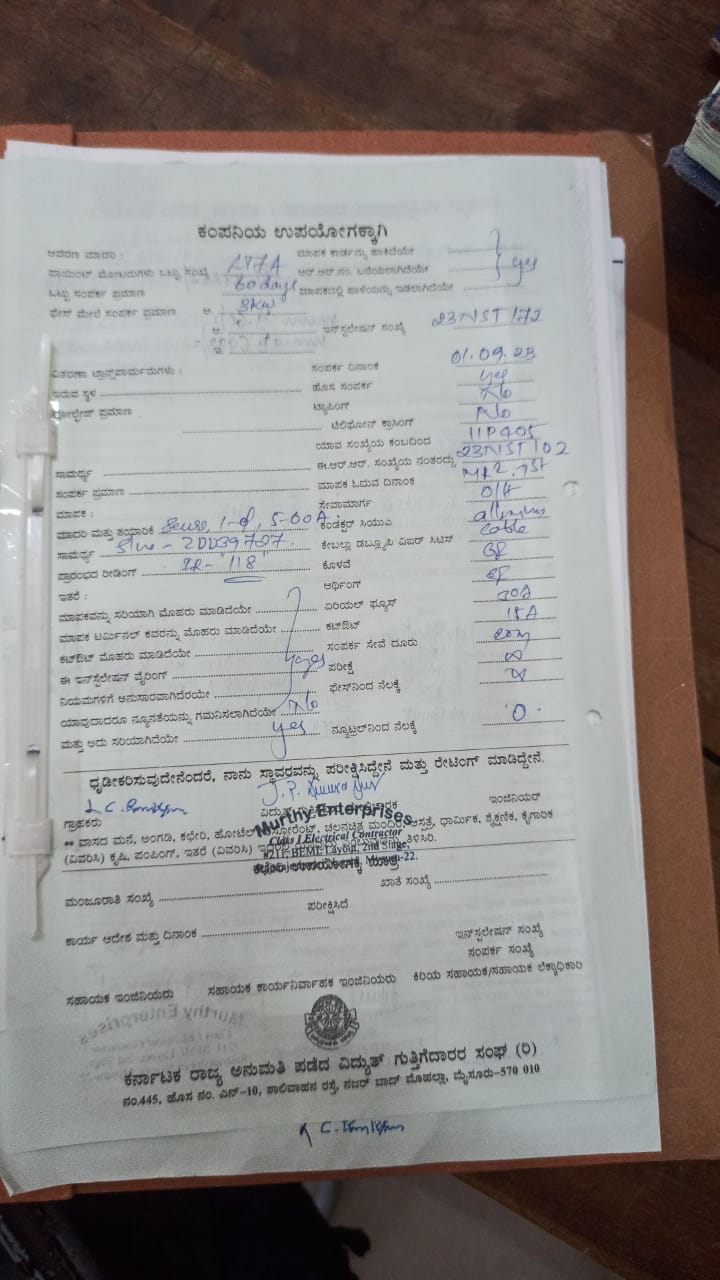 ಕಂಪನಿಯ ಉಪಯೋಗಕ್ಕಾಗಿ
ಆವರಣ ಮಾದರಿ : ಮಾಪಕ ಕಾರ್ಡನ್ನು ಹಾಕಿದೆಯೇ
ಪಾಯಿಂಟ್ ಮೋಟರುಗಳು ಒಟ್ಟು ಸಂಖ್ಯೆ ಆರ್.ಆರ್.ನಂ. ಬರೆಯಲಾಗಿದೆಯೇ yes
ಒಟ್ಟು ಸಂಪರ್ಕ ಪ್ರಮಾಣ 60 days ಮಾಪಕದಲ್ಲಿ ಹಾಳೆಯನ್ನು ಇಡಲಾಗಿದೆಯೇ
ಫೇಸ್ ಮೇಲೆ ಸಂಪರ್ಕ ಪ್ರಮಾಣ ಅ. 3kw
ಆ. ಇನ್‌ಸ್ಟಲೇಷನ್ ಸಂಖ್ಯೆ 23NST172
ಇ.
ವಿತರಣಾ ಟ್ರಾನ್ಸ್‌ಫಾರ್ಮರುಗಳು : ಸಂಪರ್ಕ ದಿನಾಂಕ 01.09.23
ಇರುವ ಸ್ಥಳ ಹೊಸ ಸಂಪರ್ಕ yes
ವೋಲ್ಟೇಜ್ ಪ್ರಮಾಣ ಟ್ಯಾಪಿಂಗ್ No
ಟೆಲಿಫೋನ್ ಕ್ರಾಸಿಂಗ್ No
ಯಾವ ಸಂಖ್ಯೆಯ ಕಂಬದಿಂದ 11P405
ಸಾಮರ್ಥ್ಯ ಈ.ಆರ್.ಆರ್. ಸಂಖ್ಯೆಯ ನಂತರದ್ದು 23NST102
ಸಂಪರ್ಕ ಪ್ರಮಾಣ ಮಾಪಕ ಓದುವ ದಿನಾಂಕ
ಮಾಪಕ : ಸೇವಾಮಾರ್ಗ O/H
ಮಾದರಿ ಮತ್ತು ತಯಾರಿಕೆ 5-60A. ಕಂಡಕ್ಟರ್ ಸಿಯುಎ
ಸಾಮರ್ಥ್ಯ ಕೇಬಲ್ಲು ಡಬ್ಲ್ಯೂಪಿ ವಿಐರ್ ಸಿಟಿಸ್ cable
ಪ್ರಾರಂಭದ ರೀಡಿಂಗ್ IR- "118" ಕೊಳವೆ
ಇತರೆ : ಅರ್ಥಿಂಗ್
ಮಾಪಕವನ್ನು ಸರಿಯಾಗಿ ಮೊಹರು ಮಾಡಿದೆಯೇ ಏರಿಯಲ್ ಫ್ಯೂಸ್ 30A
ಮಾಪಕ ಟರ್ಮಿನಲ್ ಕವರನ್ನು ಮೊಹರು ಮಾಡಿದೆಯೇ ಕಟ್‌ಔಟ್ 15A
ಕಟ್‌ಔಟ್ ಮೊಹರು ಮಾಡಿದೆಯೇ ಸಂಪರ್ಕ ಸೇವೆ ದೂರು
ಈ ಇನ್‌ಸ್ಟಲೇಷನ್ ವೈರಿಂಗ್ yes ಪರೀಕ್ಷೆ
ನಿಯಮಗಳಿಗೆ ಅನುಸಾರವಾಗಿದೆರೆಯೇ ಫೇಸ್‌ನಿಂದ ನೆಲಕ್ಕೆ
ಯಾವುದಾದರೂ ನ್ಯೂನತೆಯನ್ನು ಗಮನಿಸಲಾಗಿದೆಯೇ No
ಮತ್ತು ಅದು ಸರಿಯಾಗಿದೆಯೇ yes ನ್ಯೂಟ್ರಲ್‌ನಿಂದ ನೆಲಕ್ಕೆ 0.
ಧೃಡೀಕರಿಸುವುದೇನೆಂದರೆ, ನಾನು ಸ್ಥಾವರವನ್ನು ಪರೀಕ್ಷಿಸಿದ್ದೇನೆ ಮತ್ತು ರೇಟಿಂಗ್ ಮಾಡಿದ್ದೇನೆ.
ಗ್ರಾಹಕರು ಇಂಜಿನಿಯರ್
Murthy Enterprises
Class I Electrical Contractor
#211, BEML Layout, 2nd Stage,
Mysuru-22.
** ವಾಸದ ಮನೆ, ಅಂಗಡಿ, ಕಛೇರಿ, ಹೋಟೆಲ್ ಚಲನಚಿತ್ರ ಮಂದಿರ, ಆಸ್ಪತ್ರೆ, ಧಾರ್ಮಿಕ, ಶೈಕ್ಷಣಿಕ, ಕೈಗಾರಿಕ
(ವಿವರಿಸಿ) ಕೃಷಿ, ಪಂಪಿಂಗ್, ಇತರೆ (ವಿವರಿಸಿ) ತಿಳಿಸಿರಿ.
ಕಛೇರಿ ಉಪಯೋಗಕ್ಕೆ ಮಾತ್ರ
ಮಂಜೂರಾತಿ ಸಂಖ್ಯೆ ಖಾತೆ ಸಂಖ್ಯೆ
ಪರೀಕ್ಷಿಸಿದೆ
ಕಾರ್ಯ ಆದೇಶ ಮತ್ತು ದಿನಾಂಕ ಇನ್‌ಸ್ಟಲೇಷನ್ ಸಂಖ್ಯೆ
ಸಂಪರ್ಕ ಸಂಖ್ಯೆ
ಸಹಾಯಕ ಇಂಜಿನಿಯರು ಸಹಾಯಕ ಕಾರ್ಯನಿರ್ವಾಹಕ ಇಂಜಿನಿಯರು ಕಿರಿಯ ಸಹಾಯಕ/ಸಹಾಯಕ ಲೆಕ್ಕಾಧಿಕಾರಿ
ಕರ್ನಾಟಕ ರಾಜ್ಯ ಅನುಮತಿ ಪಡೆದ ವಿದ್ಯುತ್ ಗುತ್ತಿಗೆದಾರರ ಸಂಘ (ರಿ)
ನಂ.445, ಹೊಸ ನಂ. ಎನ್-10, ಶಾಲಿವಾಹನ ರಸ್ತೆ, ನಜರ್ ಬಾದ್ ಮೊಹಲ್ಲಾ, ಮೈಸೂರು-570 010